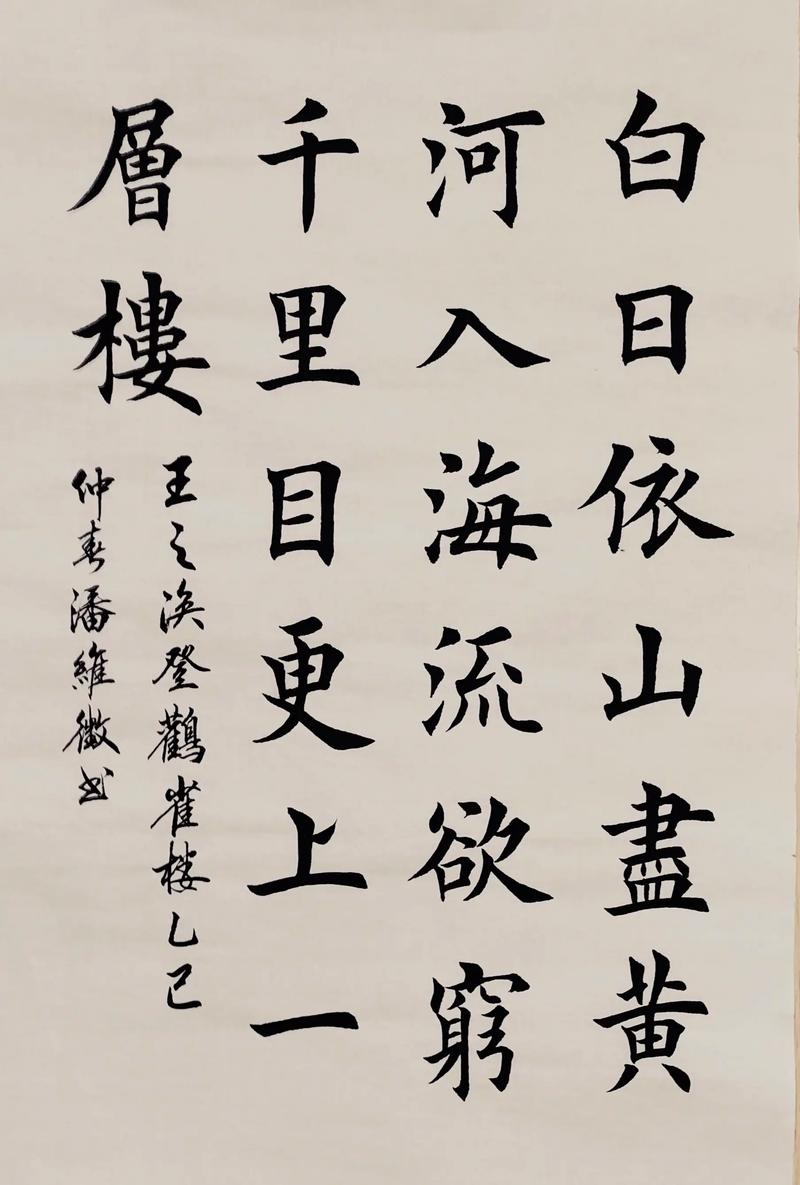 白日依山盡黃
河入海流欲窮
千里目更上一
層樓
王之渙登鸛雀楼乙巳
仲春潘維徵书